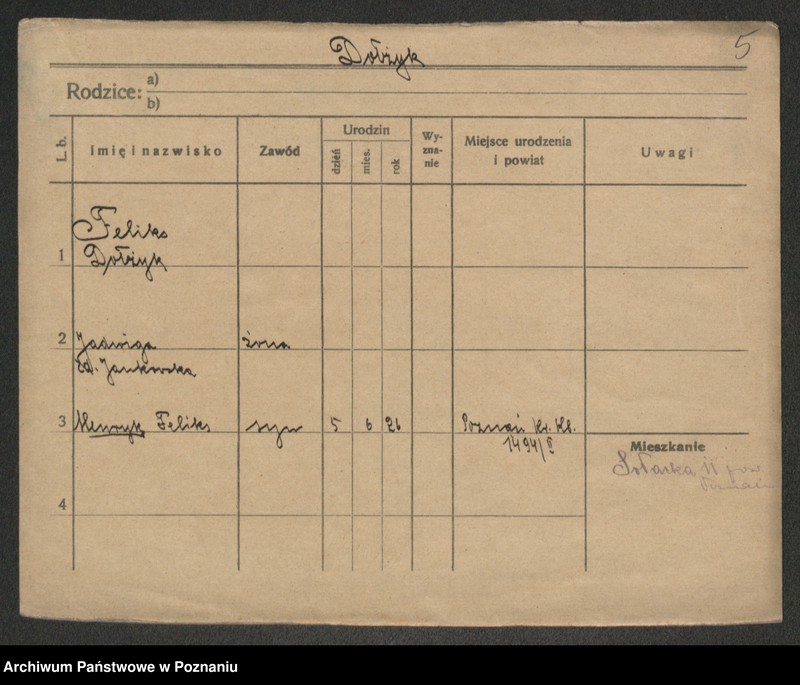 Dołżyk 5
Rodzice: a)
b)
L. b. Imię i nazwisko Zawód Urodzin dzień mies. rok Wy-zna-nie Miejsce urodzenia i powiat Uwagi
Feliks
1 Dołżyk
2 Jadwiga żona
Jankowska
3 Henryk Feliks syn 5 6 26 Poznań Kr. Kl.
1494/II
Mieszkanie
Sołacka 11 pow
Poznań
4
Archiwum Państwowe w Poznaniu